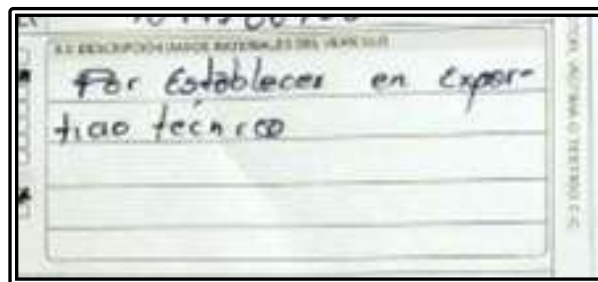 8.8 DESCRIPCIÓN DAÑOS MATERIALES DEL VEHICULO
Por Establecer en exper-
ticio técnico